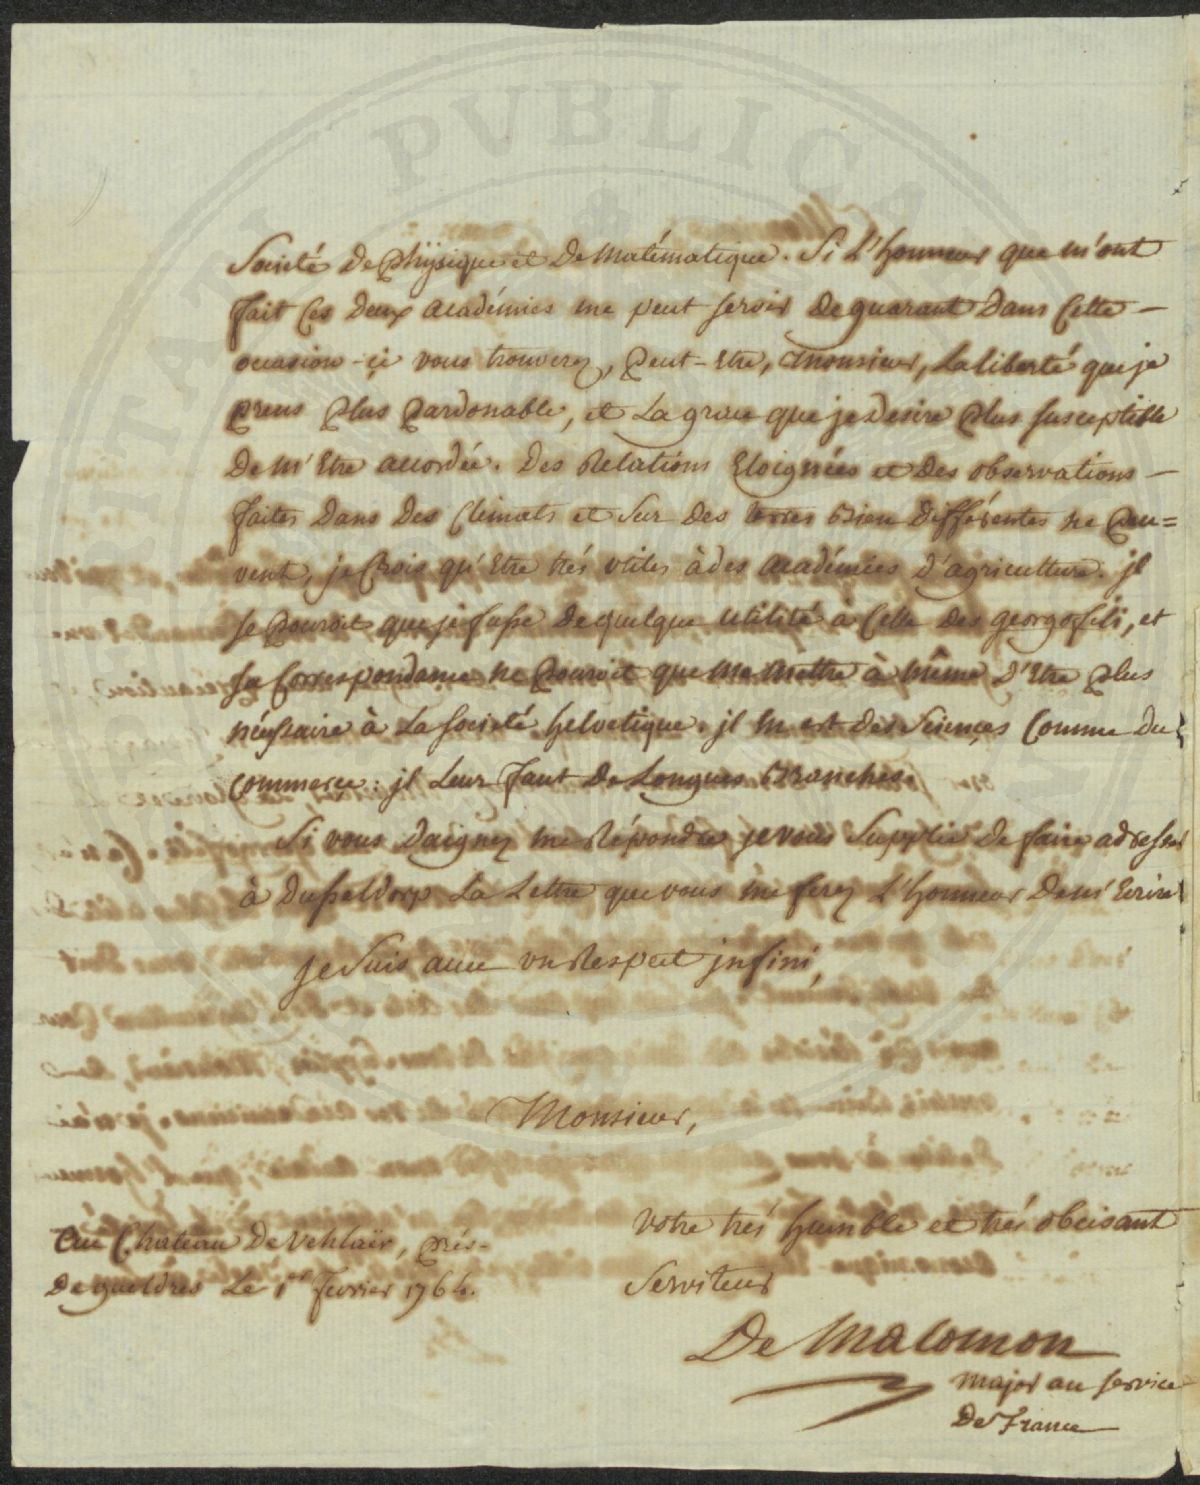 PUBLICAE
Societé de physique et de matématique. Si l'honneur que m'ont
fait ces deux académies me peut servir de guarant dans cette
occasion-çi vous trouverez, peut-etre, monsieur, la liberté que je
prens plus pardonable, et la grace que je desire plus susceptible
de m'etre accordée. des relations eloignées et des observations
faites dans des climats et sur des terres bien différentes ne peu=
vent, je crois qu'etre trés utiles à des académies d'agriculture. jl
se pouroit que je fusse de quelque utilité à celle des georgofili, et
sa correspondance ne pouroit que me mettre à même d'etre plus
nécessaire à la societé helvetique. jl en est des sciences comme du
commerce: jl leur faut de longues branches.
Si vous daignez me répondre je vous supplie de faire adresser
à dusseldorp la lettre que vous me ferez l'honneur de m'ecrire
je suis avec un respect jnfini,
Monsieur,
votre trés humble et trés obeisant
serviteur
Au Chateau de vehlaër, prés-
de gueldres le 1er fevrier 1764.
De Macomon
major au service
de France